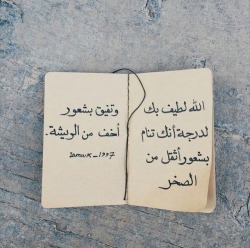 الله لطيف بك
لدرجة أنك تنام
بشعور أثقل من
الصخر
وتفيق بشعور
أخف من الريشة.